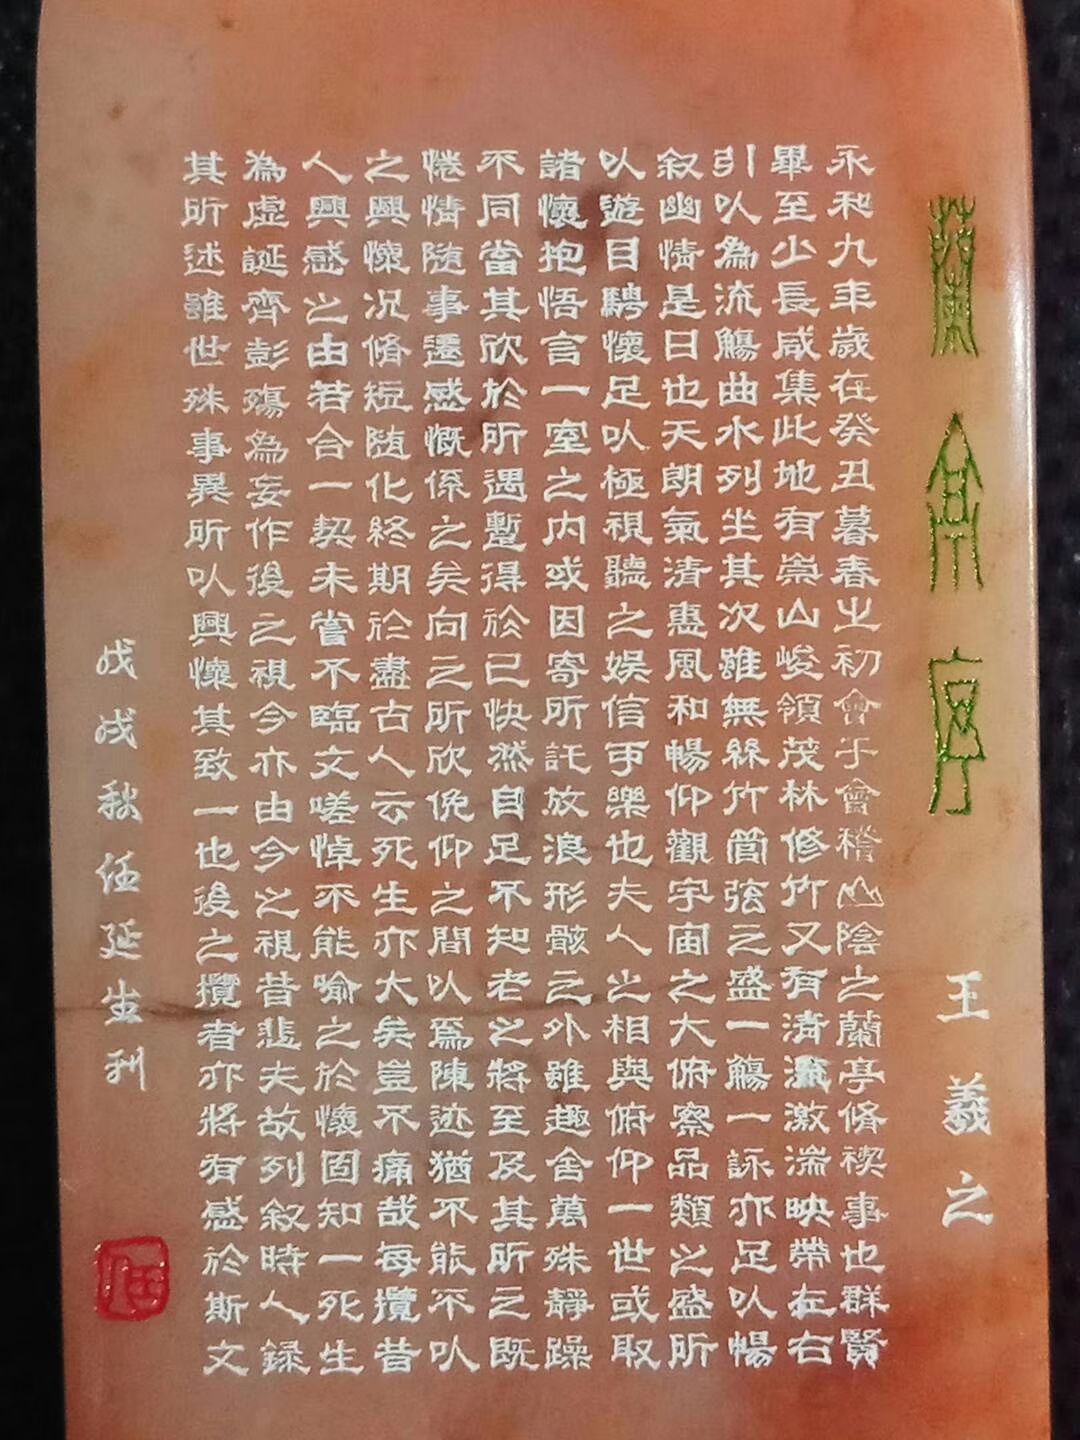 蘭亭序
王羲之
永和九年歲在癸丑暮春之初會于會稽山陰之蘭亭脩禊事也群賢
畢至少長咸集此地有崇山峻領茂林修竹又有清流激湍映帶左右
引以為流觴曲水列坐其次雖無絲竹管弦之盛一觴一詠亦足以暢
叙幽情是日也天朗氣清惠風和暢仰觀宇宙之大俯察品類之盛所
以遊目騁懷足以極視聽之娛信可樂也夫人之相與俯仰一世或取
諸懷抱悟言一室之内或因寄所託放浪形骸之外雖趣舍萬殊靜躁
不同當其欣於所遇蹔得於己快然自足不知老之將至及其所之既
惓情隨事遷感慨係之矣向之所欣俛仰之間以為陳迹猶不能不以
之興懷況脩短隨化終期於盡古人云死生亦大矣豈不痛哉每攬昔
人興感之由若合一契未嘗不臨文嗟悼不能喻之於懷固知一死生
為虛誕齊彭殤為妄作後之視今亦由今之視昔悲夫故列叙時人錄
其所述雖世殊事異所以興懷其致一也後之攬者亦將有感於斯文
戊戌秋任延生刊